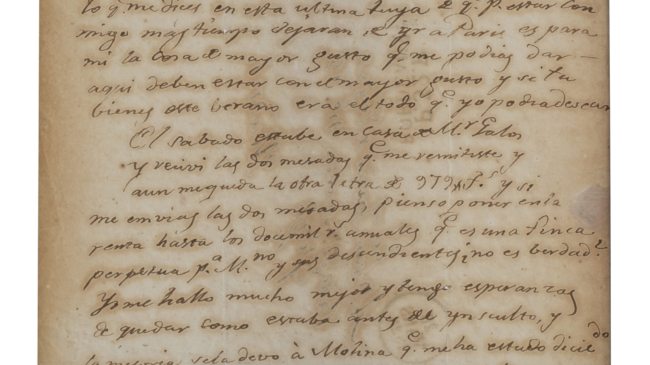 lo q.e me dices en esta ultima tuya de q.e p.r estar con
migo mas tiempo dejaran de yr a Paris es para
mi la cosa de mayor gusto q.e me podias dar —
aqui deben estar con el mayor gusto y si tu
bienes este berano era el todo q.e yo podia desear
El sabado estube en casa de M.r Galos
y reciví las dos mesadas q.e me remitiste, y
aun me queda la otra letra de 979 f.s y si
me envias las dos mesadas, pienso poner en la
renta hasta los docemil r.s anuales q.e es una finca
perpetua p.a M.no y sus descendientes ¿no es berdad?
Yo me hallo mucho mejor y tengo esperanzas
de quedar como estaba antes del ynsulto, y
la mejoria se la devo à Molina q.e me ha estado dicien
do